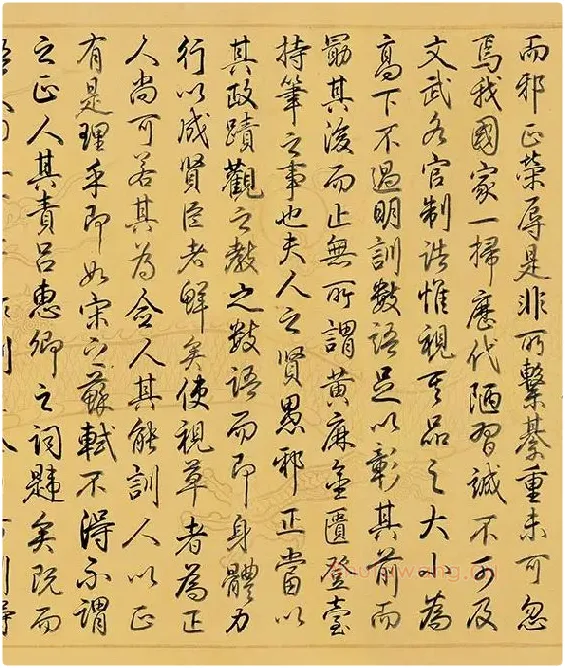 而邪正榮辱是非所繫綦重未可忽
焉我國家一掃歷代陋習誠不可及
文武各官制誥惟視其品之大小為
高下不過明訓數語足以彰其前而
勗其後而止無所謂黃麻金匱登臺
持筆之事也夫人之賢愚邪正當以
其政蹟觀之敎之數語而即身體力
行以成賢臣者鮮矣使視草者為正
人尚可若其為僉人其能訓人以正
有是理乎即如宋之蘇軾不得不謂
之正人其責呂惠卿之詞韙矣既而